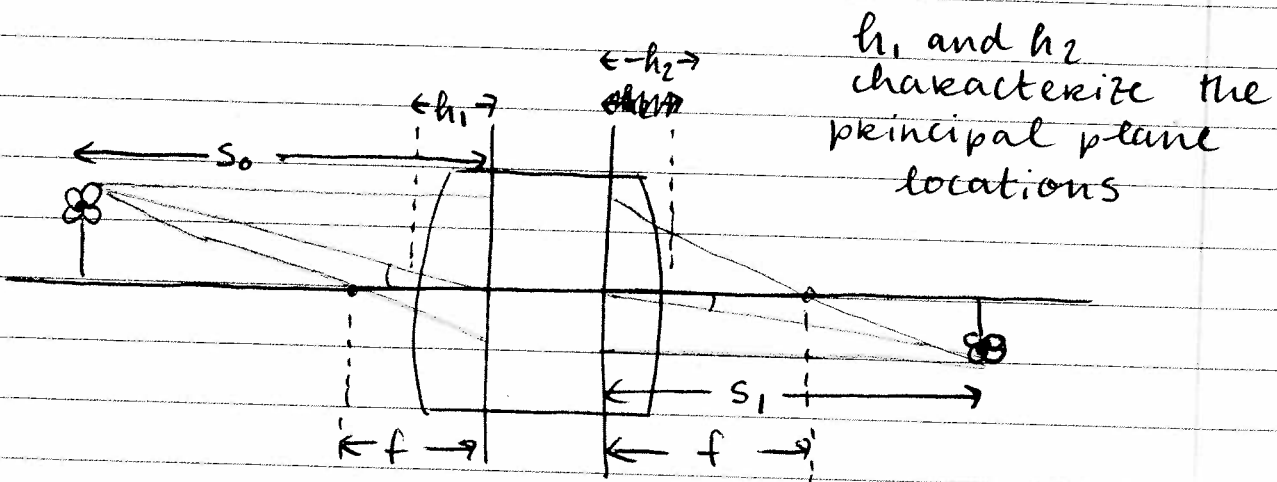 h₁ and h₂
characterize the
principal plane
locations
h₂
h₁
S₀
S₁
f
f